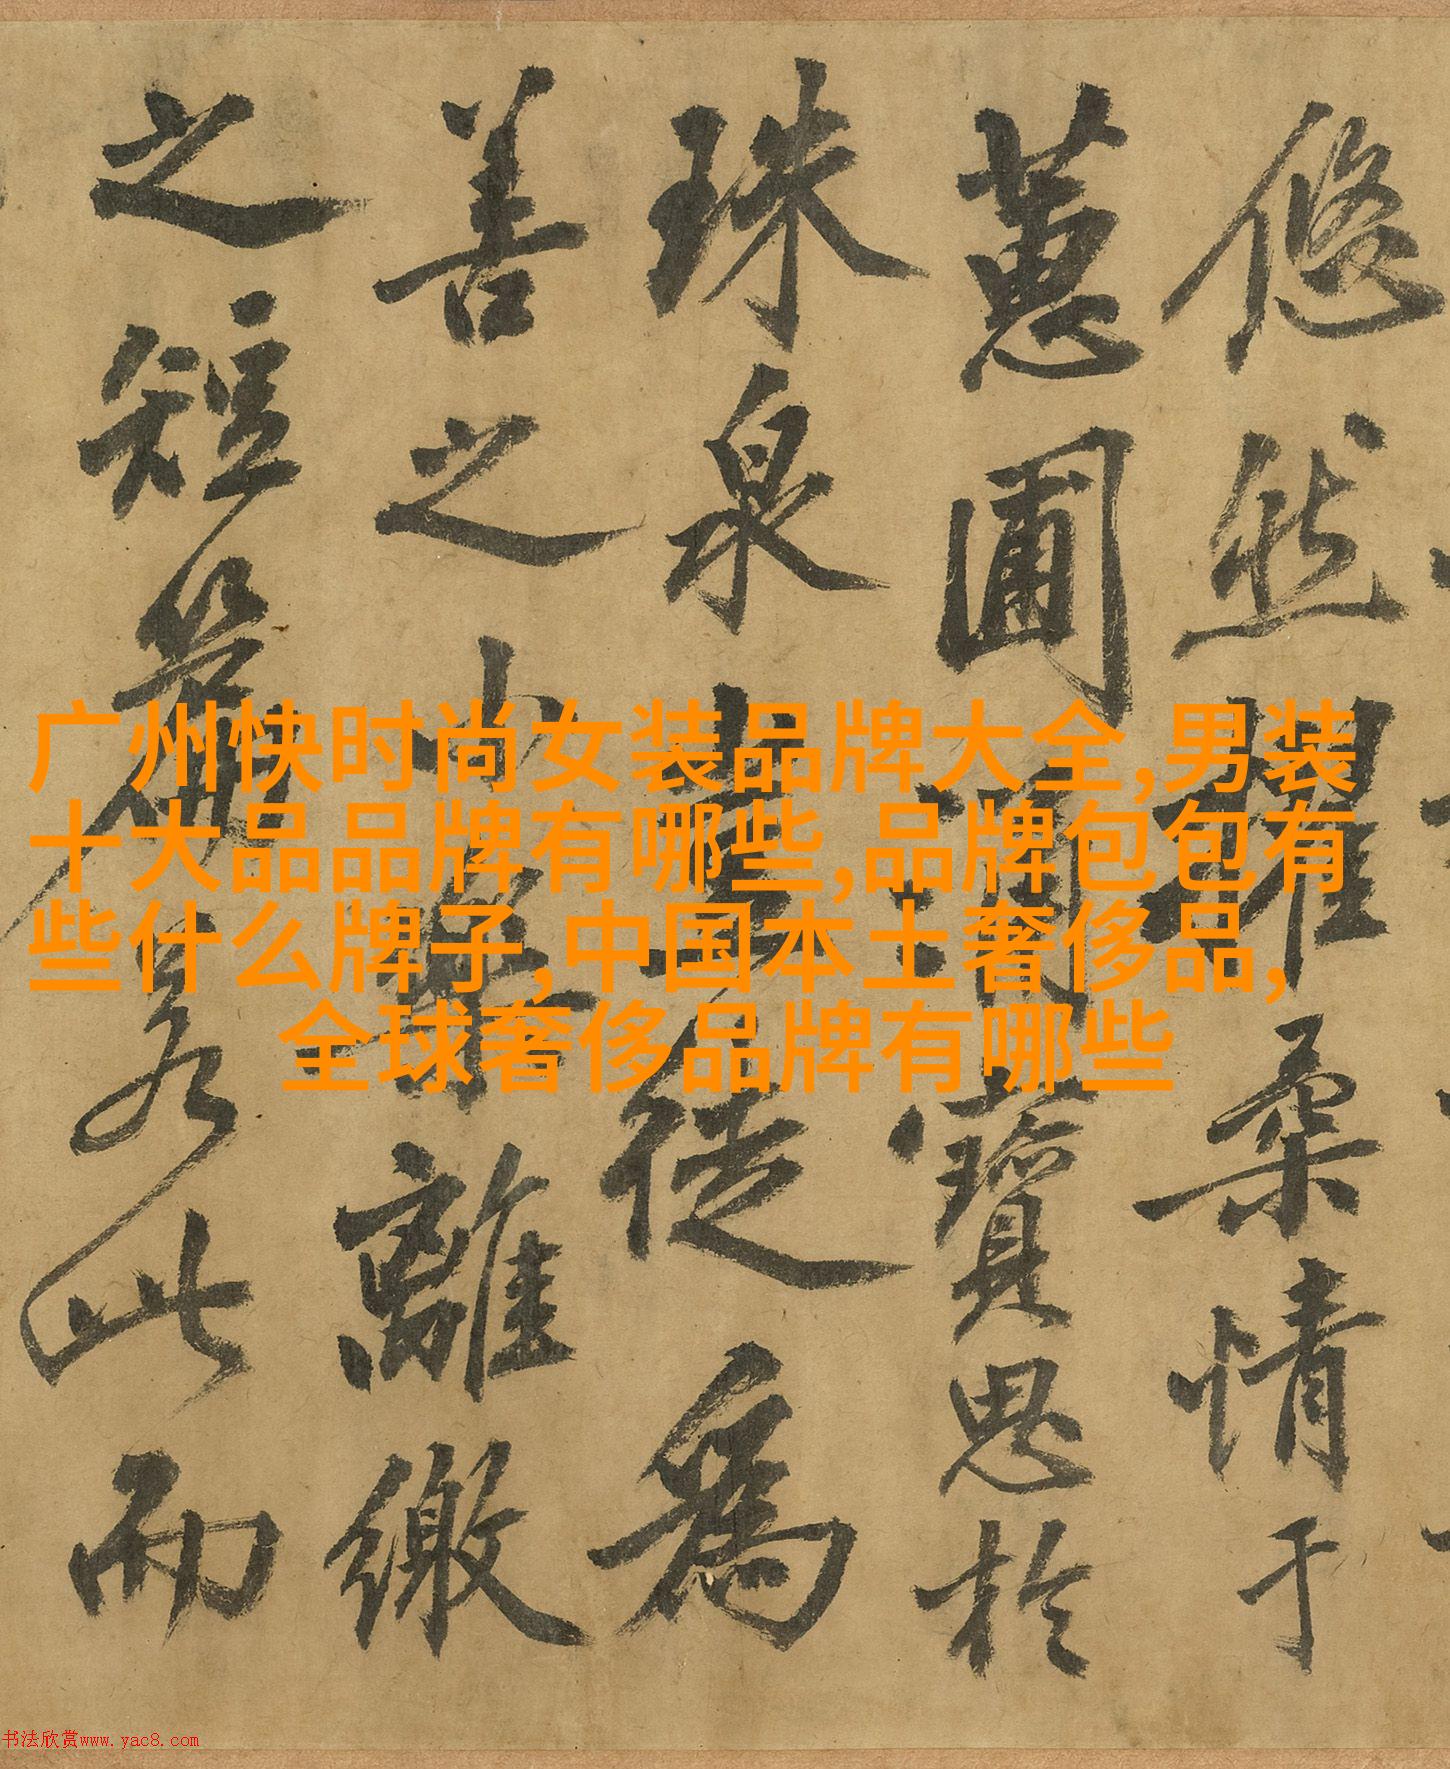 悠然桑情于
蕙圃寶思於
珠泉徒為
善之離繳
之短若此而
广州快时尚女装品牌大全,男装
十大品品牌有哪些,品牌包包有
些什么牌子,中国本土奢侈品,
全球奢侈品牌有哪些
书法欣赏www.yac8.com